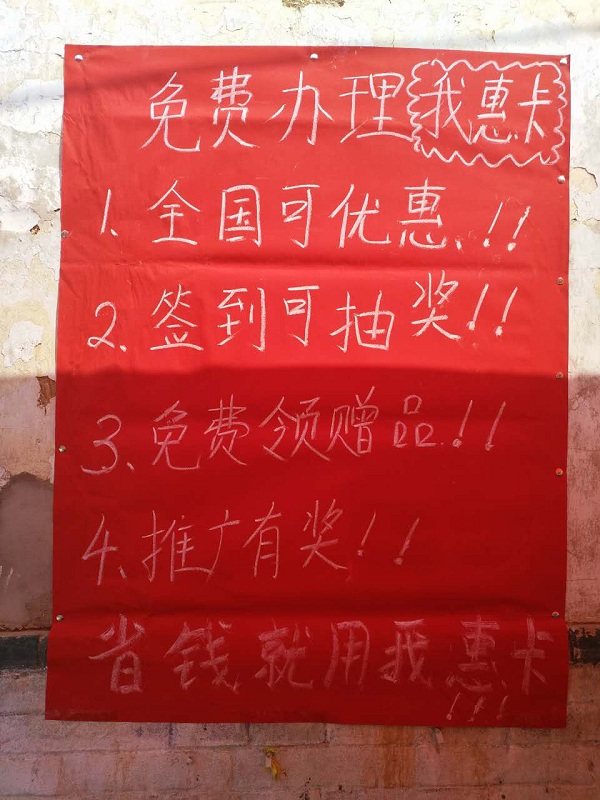 免费办理我惠卡
1.全国可优惠.!!
2.签到可抽奖!!
3、免费领赠品!!
4、推广有奖!!
省钱就用我惠卡
!!!